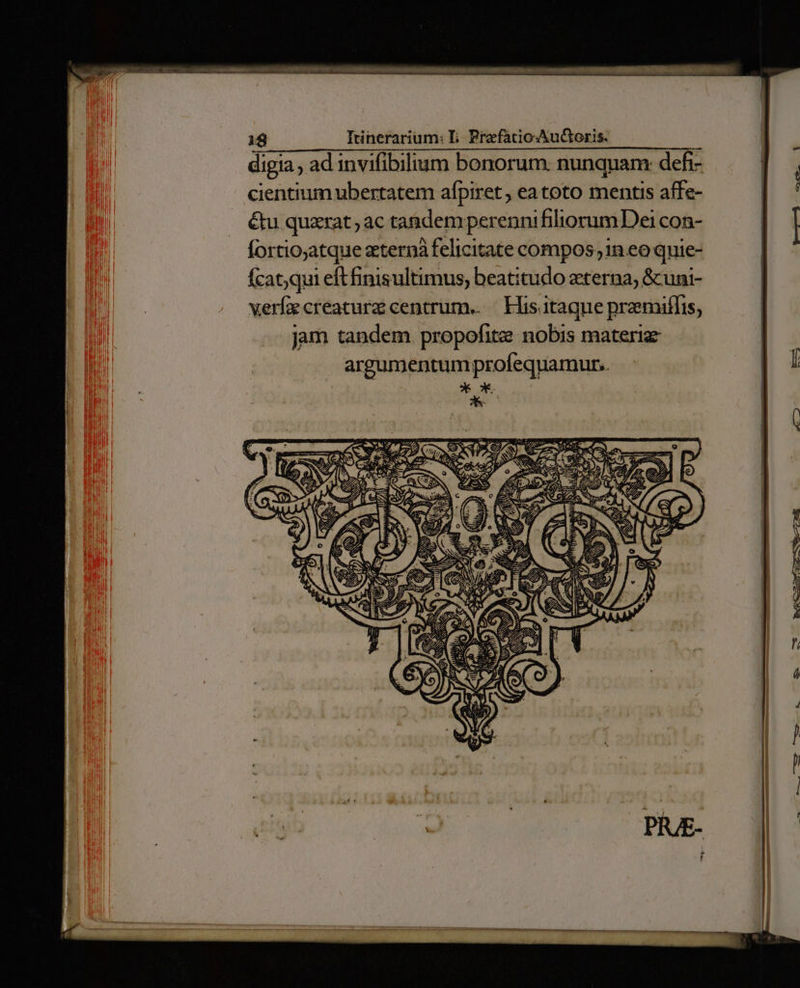 18 Itinerarium: I. Præfatio Auctoris.
digia, ad inviſibilium bonorum nunquam defi-
cientium ubertatem aſpiret, ea toto mentis affe-
ctu quærat, ac tandem perenni filiorum Dei con-
ſortio, atque æternâ felicitate compos, in eo quie-
ſcat, qui eſt finis ultimus, beatitudo æterna, & uni-
verſæ creaturæ centrum. His itaque præmiſſis,
jam tandem propoſitæ nobis materiæ
argumentum proſequamur.
* *
*
PRÆ-